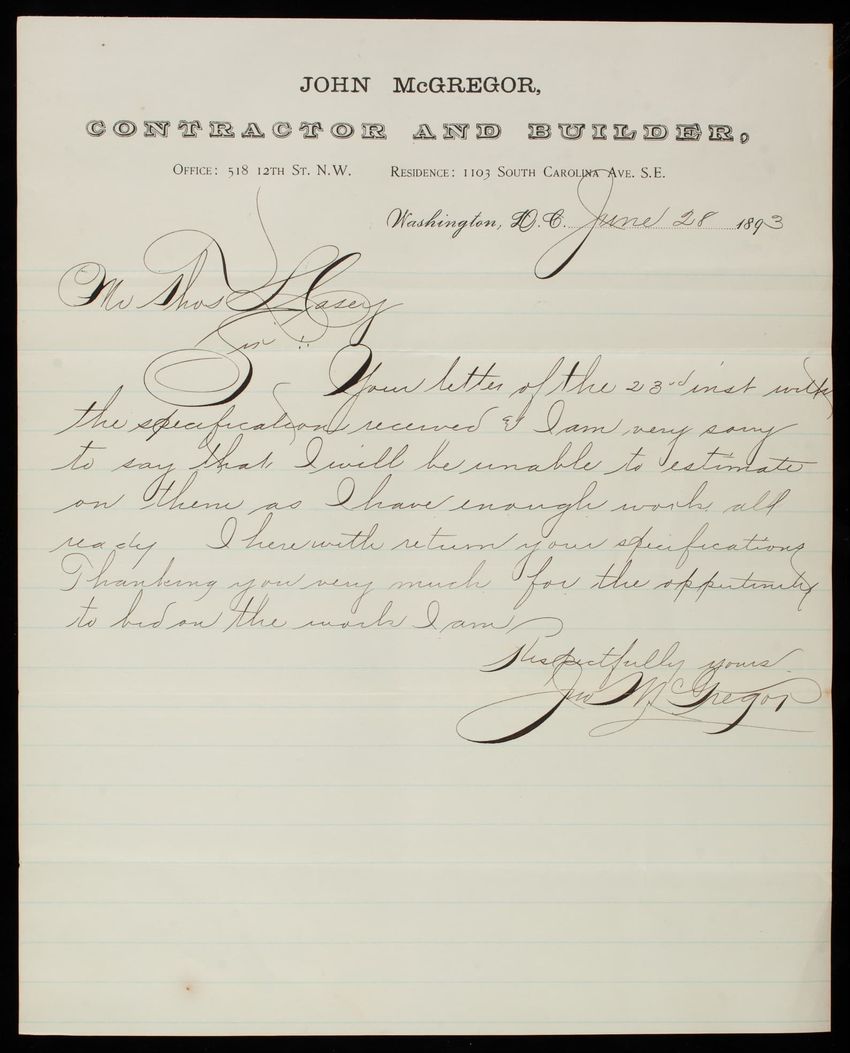 JOHN McGREGOR,
CONTRACTOR AND BUILDER,
OFFICE: 518 12TH ST. N.W. RESIDENCE: 1103 SOUTH CAROLINA AVE. S.E.
Washington, D.C. June 28 1893
Mr Thos L Casey
Sir
Your letter of the 23rd inst with
the specification received & I am very sorry
to say that I will be unable to estimate
on them as I have enough work all
ready I herewith return your specifications
Thanking you very much for the oppertunity
to bid on the work I am
Respectfully yours
Jno McGregor